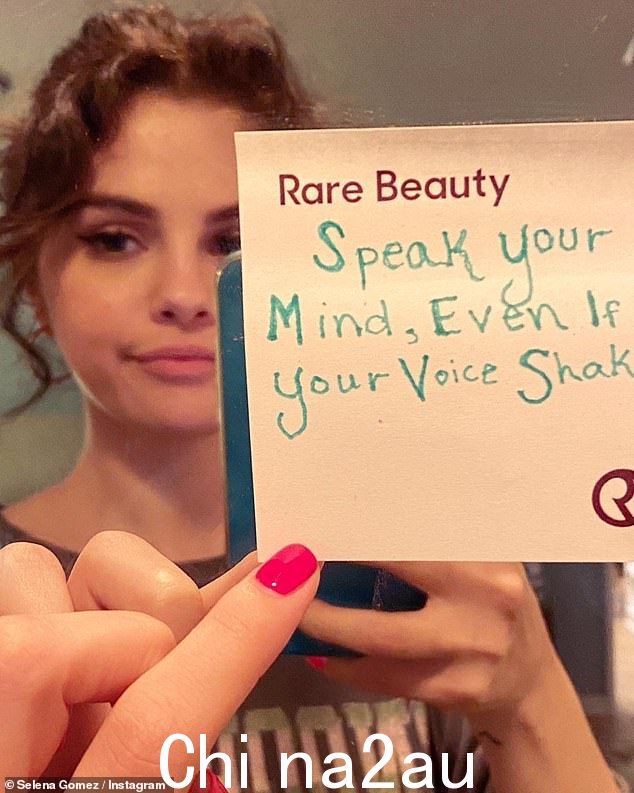 Rare Beauty
Speak your
Mind, Even If
your Voice Shak
R
©Selena Gomez / Instagram
China2au